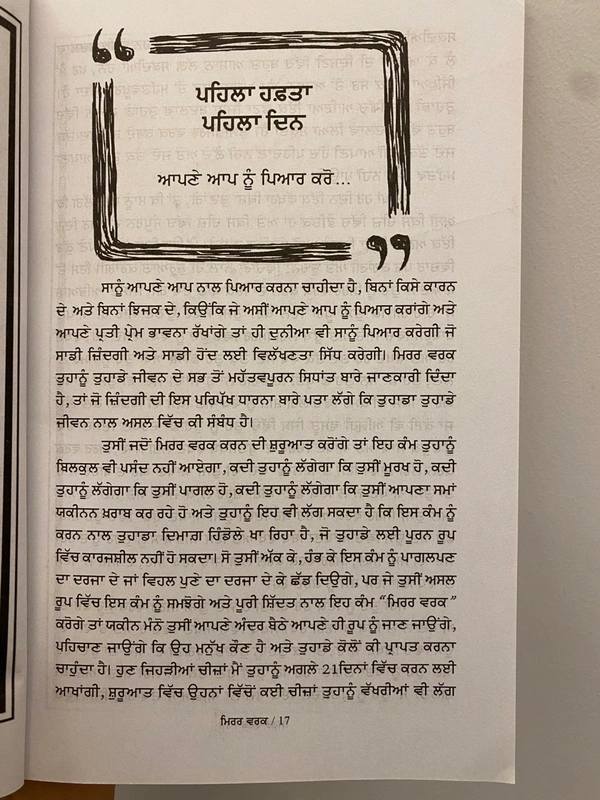 ਪਹਿਲਾ ਹਫ਼ਤਾ
ਪਹਿਲਾ ਦਿਨ
ਆਪਣੇ ਆਪ ਨੂੰ ਪਿਆਰ ਕਰੋ...
ਸਾਨੂੰ ਆਪਣੇ ਆਪ ਨਾਲ ਪਿਆਰ ਕਰਨਾ ਚਾਹੀਦਾ ਹੈ, ਬਿਨਾਂ ਕਿਸੇ ਕਾਰਨ
ਦੇ ਅਤੇ ਬਿਨਾਂ ਝਿਜਕ ਦੇ, ਕਿਉਂਕਿ ਜੇ ਅਸੀਂ ਆਪਣੇ ਆਪ ਨੂੰ ਪਿਆਰ ਕਰਾਂਗੇ ਅਤੇ
ਆਪਣੇ ਪ੍ਰਤੀ ਪ੍ਰੇਮ ਭਾਵਨਾ ਰੱਖਾਂਗੇ ਤਾਂ ਹੀ ਦੁਨੀਆ ਵੀ ਸਾਨੂੰ ਪਿਆਰ ਕਰੇਗੀ ਜੋ
ਸਾਡੀ ਜ਼ਿੰਦਗੀ ਅਤੇ ਸਾਡੀ ਹੋਂਦ ਲਈ ਵਿਲੱਖਣਤਾ ਸਿੱਧ ਕਰੇਗੀ। ਮਿਰਰ ਵਰਕ
ਤੁਹਾਨੂੰ ਤੁਹਾਡੇ ਜੀਵਨ ਦੇ ਸਭ ਤੋਂ ਮਹੱਤਵਪੂਰਨ ਸਿਧਾਂਤ ਬਾਰੇ ਜਾਣਕਾਰੀ ਦਿੰਦਾ
ਹੈ, ਤਾਂ ਜੋ ਜ਼ਿੰਦਗੀ ਦੀ ਇਸ ਪਰਿਪੱਖ ਧਾਰਨਾ ਬਾਰੇ ਪਤਾ ਲੱਗੇ ਕਿ ਤੁਹਾਡਾ ਤੁਹਾਡੇ
ਜੀਵਨ ਨਾਲ ਅਸਲ ਵਿੱਚ ਕੀ ਸੰਬੰਧ ਹੈ।
ਤੁਸੀਂ ਜਦੋਂ ਮਿਰਰ ਵਰਕ ਕਰਨ ਦੀ ਸ਼ੁਰੂਆਤ ਕਰੋਂਗੇ ਤਾਂ ਇਹ ਕੰਮ ਤੁਹਾਨੂੰ
ਬਿਲਕੁਲ ਵੀ ਪਸੰਦ ਨਹੀਂ ਆਏਗਾ, ਕਦੀ ਤੁਹਾਨੂੰ ਲੱਗੇਗਾ ਕਿ ਤੁਸੀਂ ਮੂਰਖ ਹੋ, ਕਦੀ
ਤੁਹਾਨੂੰ ਲੱਗੇਗਾ ਕਿ ਤੁਸੀਂ ਪਾਗਲ ਹੋ, ਕਦੀ ਤੁਹਾਨੂੰ ਲੱਗੇਗਾ ਕਿ ਤੁਸੀਂ ਆਪਣਾ ਸਮਾਂ
ਯਕੀਨਨ ਖ਼ਰਾਬ ਕਰ ਰਹੇ ਹੋ ਅਤੇ ਤੁਹਾਨੂੰ ਇਹ ਵੀ ਲੱਗ ਸਕਦਾ ਹੈ ਕਿ ਇਸ ਕੰਮ ਨੂੰ
ਕਰਨ ਨਾਲ ਤੁਹਾਡਾ ਦਿਮਾਗ਼ ਹਿੰਡੋਲੇ ਖਾ ਰਿਹਾ ਹੈ, ਜੋ ਤੁਹਾਡੇ ਲਈ ਪੂਰਨ ਰੂਪ
ਵਿੱਚ ਕਾਰਜਸ਼ੀਲ ਨਹੀਂ ਹੋ ਸਕਦਾ। ਸੋ ਤੁਸੀਂ ਅੱਕ ਕੇ, ਹੰਭ ਕੇ ਇਸ ਕੰਮ ਨੂੰ ਪਾਗਲਪਣ
ਦਾ ਦਰਜਾ ਦੇ ਜਾਂ ਵਿਹਲ ਪੁਣੇ ਦਾ ਦਰਜਾ ਦੇ ਕੇ ਛੱਡ ਦਿਉਗੇ, ਪਰ ਜੇ ਤੁਸੀਂ ਅਸਲ
ਰੂਪ ਵਿੱਚ ਇਸ ਕੰਮ ਨੂੰ ਸਮਝੋਗੇ ਅਤੇ ਪੂਰੀ ਸ਼ਿੱਦਤ ਨਾਲ ਇਹ ਕੰਮ “ਮਿਰਰ ਵਰਕ”
ਕਰੋਗੇ ਤਾਂ ਯਕੀਨ ਮੰਨੋ ਤੁਸੀਂ ਆਪਣੇ ਅੰਦਰ ਬੈਠੇ ਆਪਣੇ ਹੀ ਰੂਪ ਨੂੰ ਜਾਣ ਜਾਉਂਗੇ,
ਪਹਿਚਾਣ ਜਾਉਂਗੇ ਕਿ ਉਹ ਮਨੁੱਖ ਕੌਣ ਹੈ ਅਤੇ ਤੁਹਾਡੇ ਕੋਲੋਂ ਕੀ ਪ੍ਰਾਪਤ ਕਰਨਾ
ਚਾਹੁੰਦਾ ਹੈ। ਹੁਣ ਜਿਹੜੀਆਂ ਚੀਜ਼ਾਂ ਮੈਂ ਤੁਹਾਨੂੰ ਅਗਲੇ 21ਦਿਨਾਂ ਵਿੱਚ ਕਰਨ ਲਈ
ਆਖਾਂਗੀ, ਸ਼ੁਰੂਆਤ ਵਿੱਚ ਉਹਨਾਂ ਵਿੱਚੋਂ ਕਈ ਚੀਜ਼ਾਂ ਤੁਹਾਨੂੰ ਵੱਖਰੀਆਂ ਵੀ ਲੱਗ
ਮਿਰਰ ਵਰਕ / 17